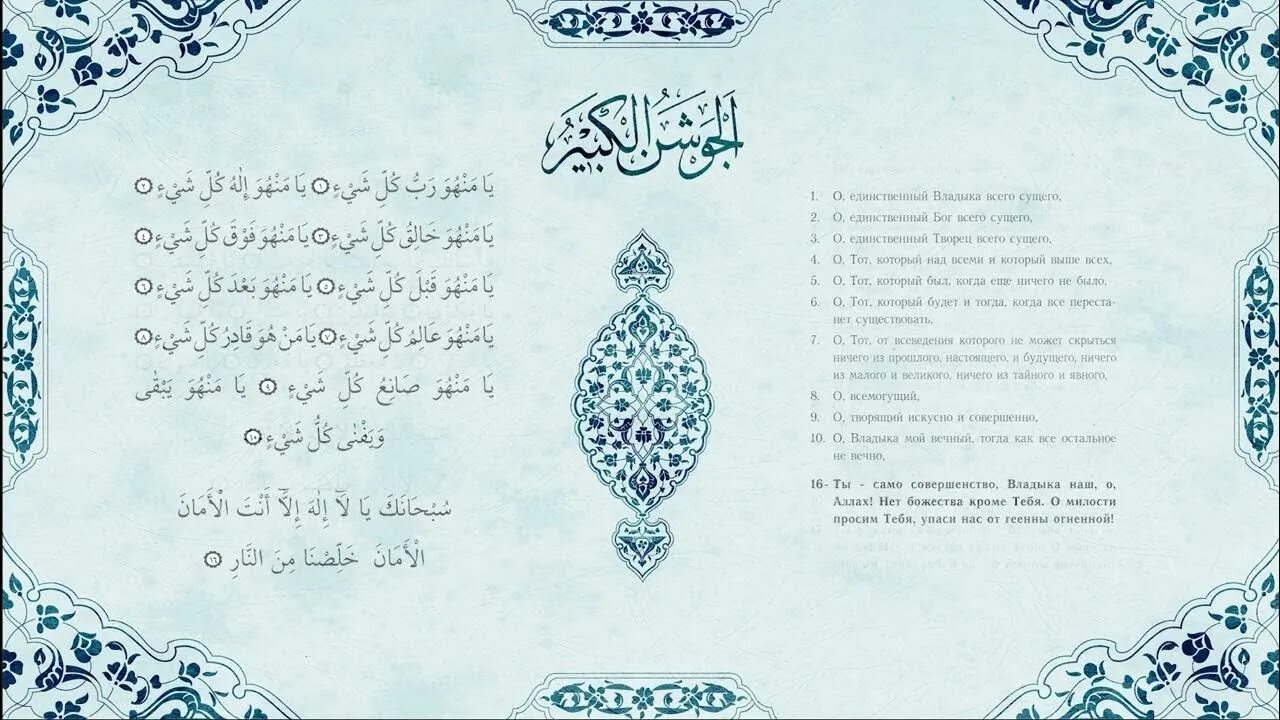 اَلْجَوْشَنُ الْكَبِيرُ
يَا مَنْهُوَ رَبُّ كُلِّ شَيْءٍ ١ يَا مَنْهُوَ اِلٰهُ كُلِّ شَيْءٍ ٢
يَا مَنْهُوَ خَالِقُ كُلِّ شَيْءٍ ٣ يَا مَنْهُوَ فَوْقَ كُلِّ شَيْءٍ ٤
يَا مَنْهُوَ قَبْلَ كُلِّ شَيْءٍ ٥ يَا مَنْهُوَ بَعْدَ كُلِّ شَيْءٍ ٦
يَا مَنْهُوَ عَالِمُ كُلِّ شَيْءٍ ٧ يَا مَنْ هُوَ قَادِرُ كُلِّ شَيْءٍ ٨
يَا مَنْهُوَ صَانِعُ كُلِّ شَيْءٍ ٩ يَا مَنْهُوَ يَبْقٰى
وَيَفْنٰى كُلُّ شَيْءٍ ١٠
سُبْحَانَكَ يَا لَآ اِلٰهَ اِلَّآ أَنْتَ الْأَمَانَ
الْأَمَانَ خَلِّصْنَا مِنَ النَّارِ ١٦
1. О, единственный Владыка всего сущего,
2. О, единственный Бог всего сущего,
3. О, единственный Творец всего сущего,
4. О, Тот, который над всеми и который выше всех,
5. О, Тот, который был, когда еще ничего не было,
6. О, Тот, который будет и тогда, когда все переста-
нет существовать.
7. О, Тот, от всеведения которого не может скрыться
ничего из прошлого, настоящего, и будущего, ничего
из малого и великого, ничего из тайного и явного,
8. О, всемогущий,
9. О, творящий искусно и совершенно,
10. О, Владыка мой вечный, тогда как все остальное
не вечно,
16- Ты - само совершенство, Владыка наш, о,
Аллах! Нет божества кроме Тебя. О милости
просим Тебя, упаси нас от геенны огненной!